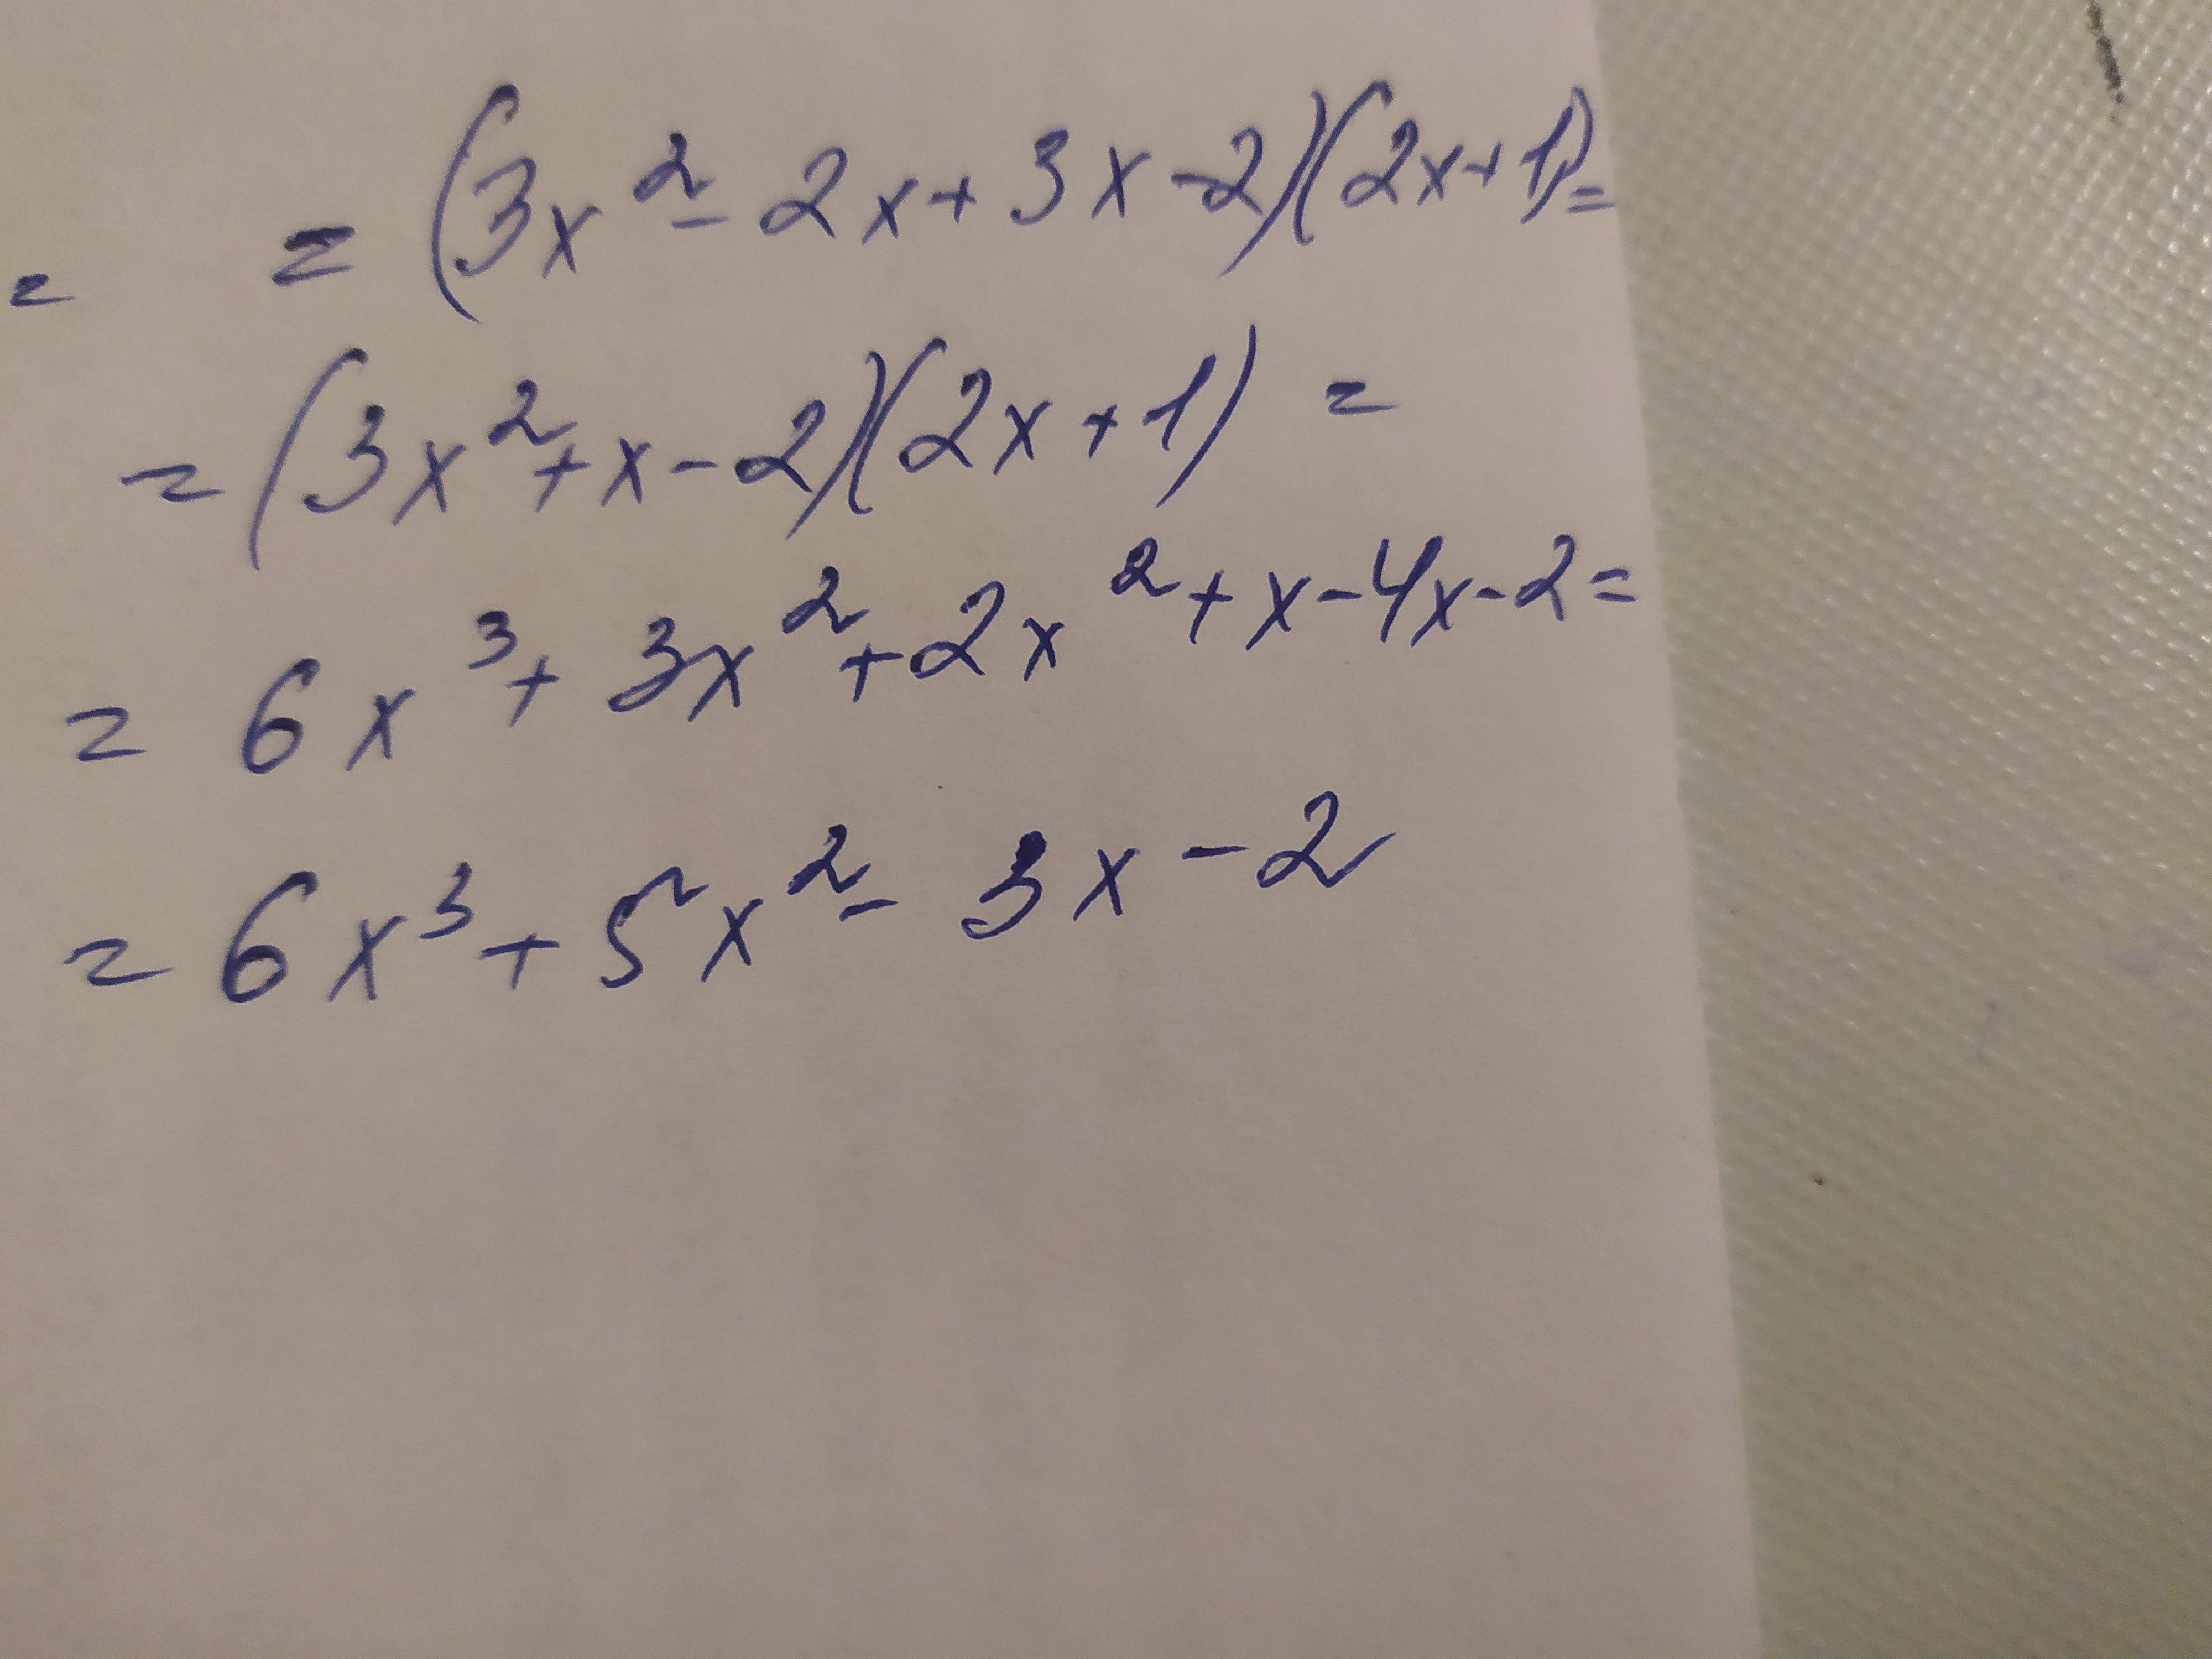 = = (3x² - 2x + 3x - 2)(2x + 1) =
= (3x² + x - 2)(2x + 1) =
= 6x³ + 3x² + 2x² + x - 4x - 2 =
= 6x³ + 5x² - 3x - 2